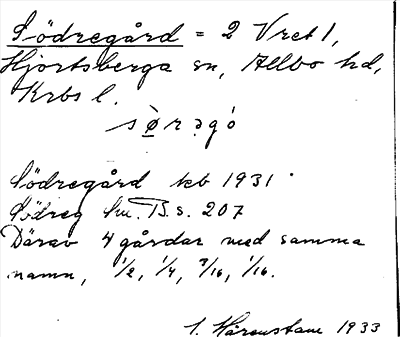 Södregård = 2 Vret 1,
Hjortsberga sn, Allbo hd,
Krbs l.
sø̀rəgó
Södregård kb 1931
Södreg Sm. B. s. 207
Därav 4 gårdar med samma
namn, 1/2, 1/4, 3/16, 1/16.
1933